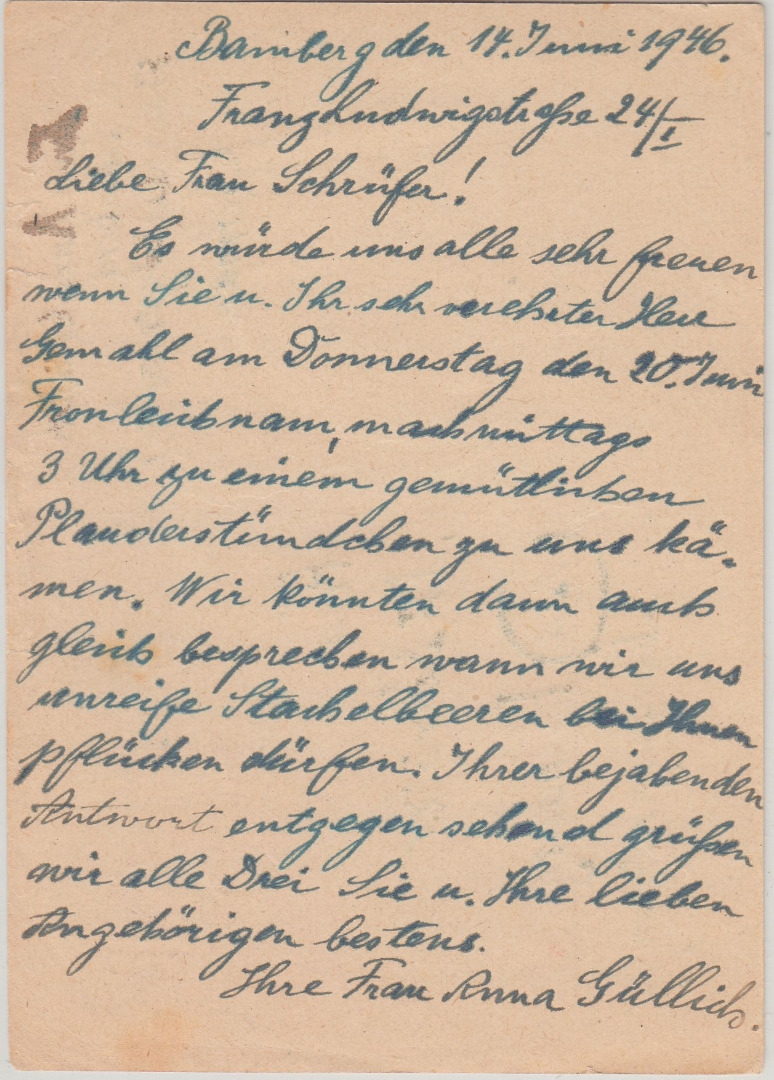 Bamberg den 14. Juni 1946.
Franz Ludwigstraße 24/I
Liebe Frau Schrüfer!
Es würde uns alle sehr freuen
wenn Sie u. Ihr sehr verehrter Herr
Gemahl am Donnerstag den 20. Juni
Fronleichnam, nachmittags
3 Uhr zu einem gemütlichen
Plauderstündchen zu uns kä-
men. Wir könnten dann auch
gleich besprechen wann wir uns
unreife Stachelbeeren bei Ihnen
pflücken dürfen. Ihrer bejahenden
Antwort entgegen sehend grüßen
wir alle Drei Sie u. Ihre lieben
Angehörigen bestens.
Ihre Frau Anna Güllich.